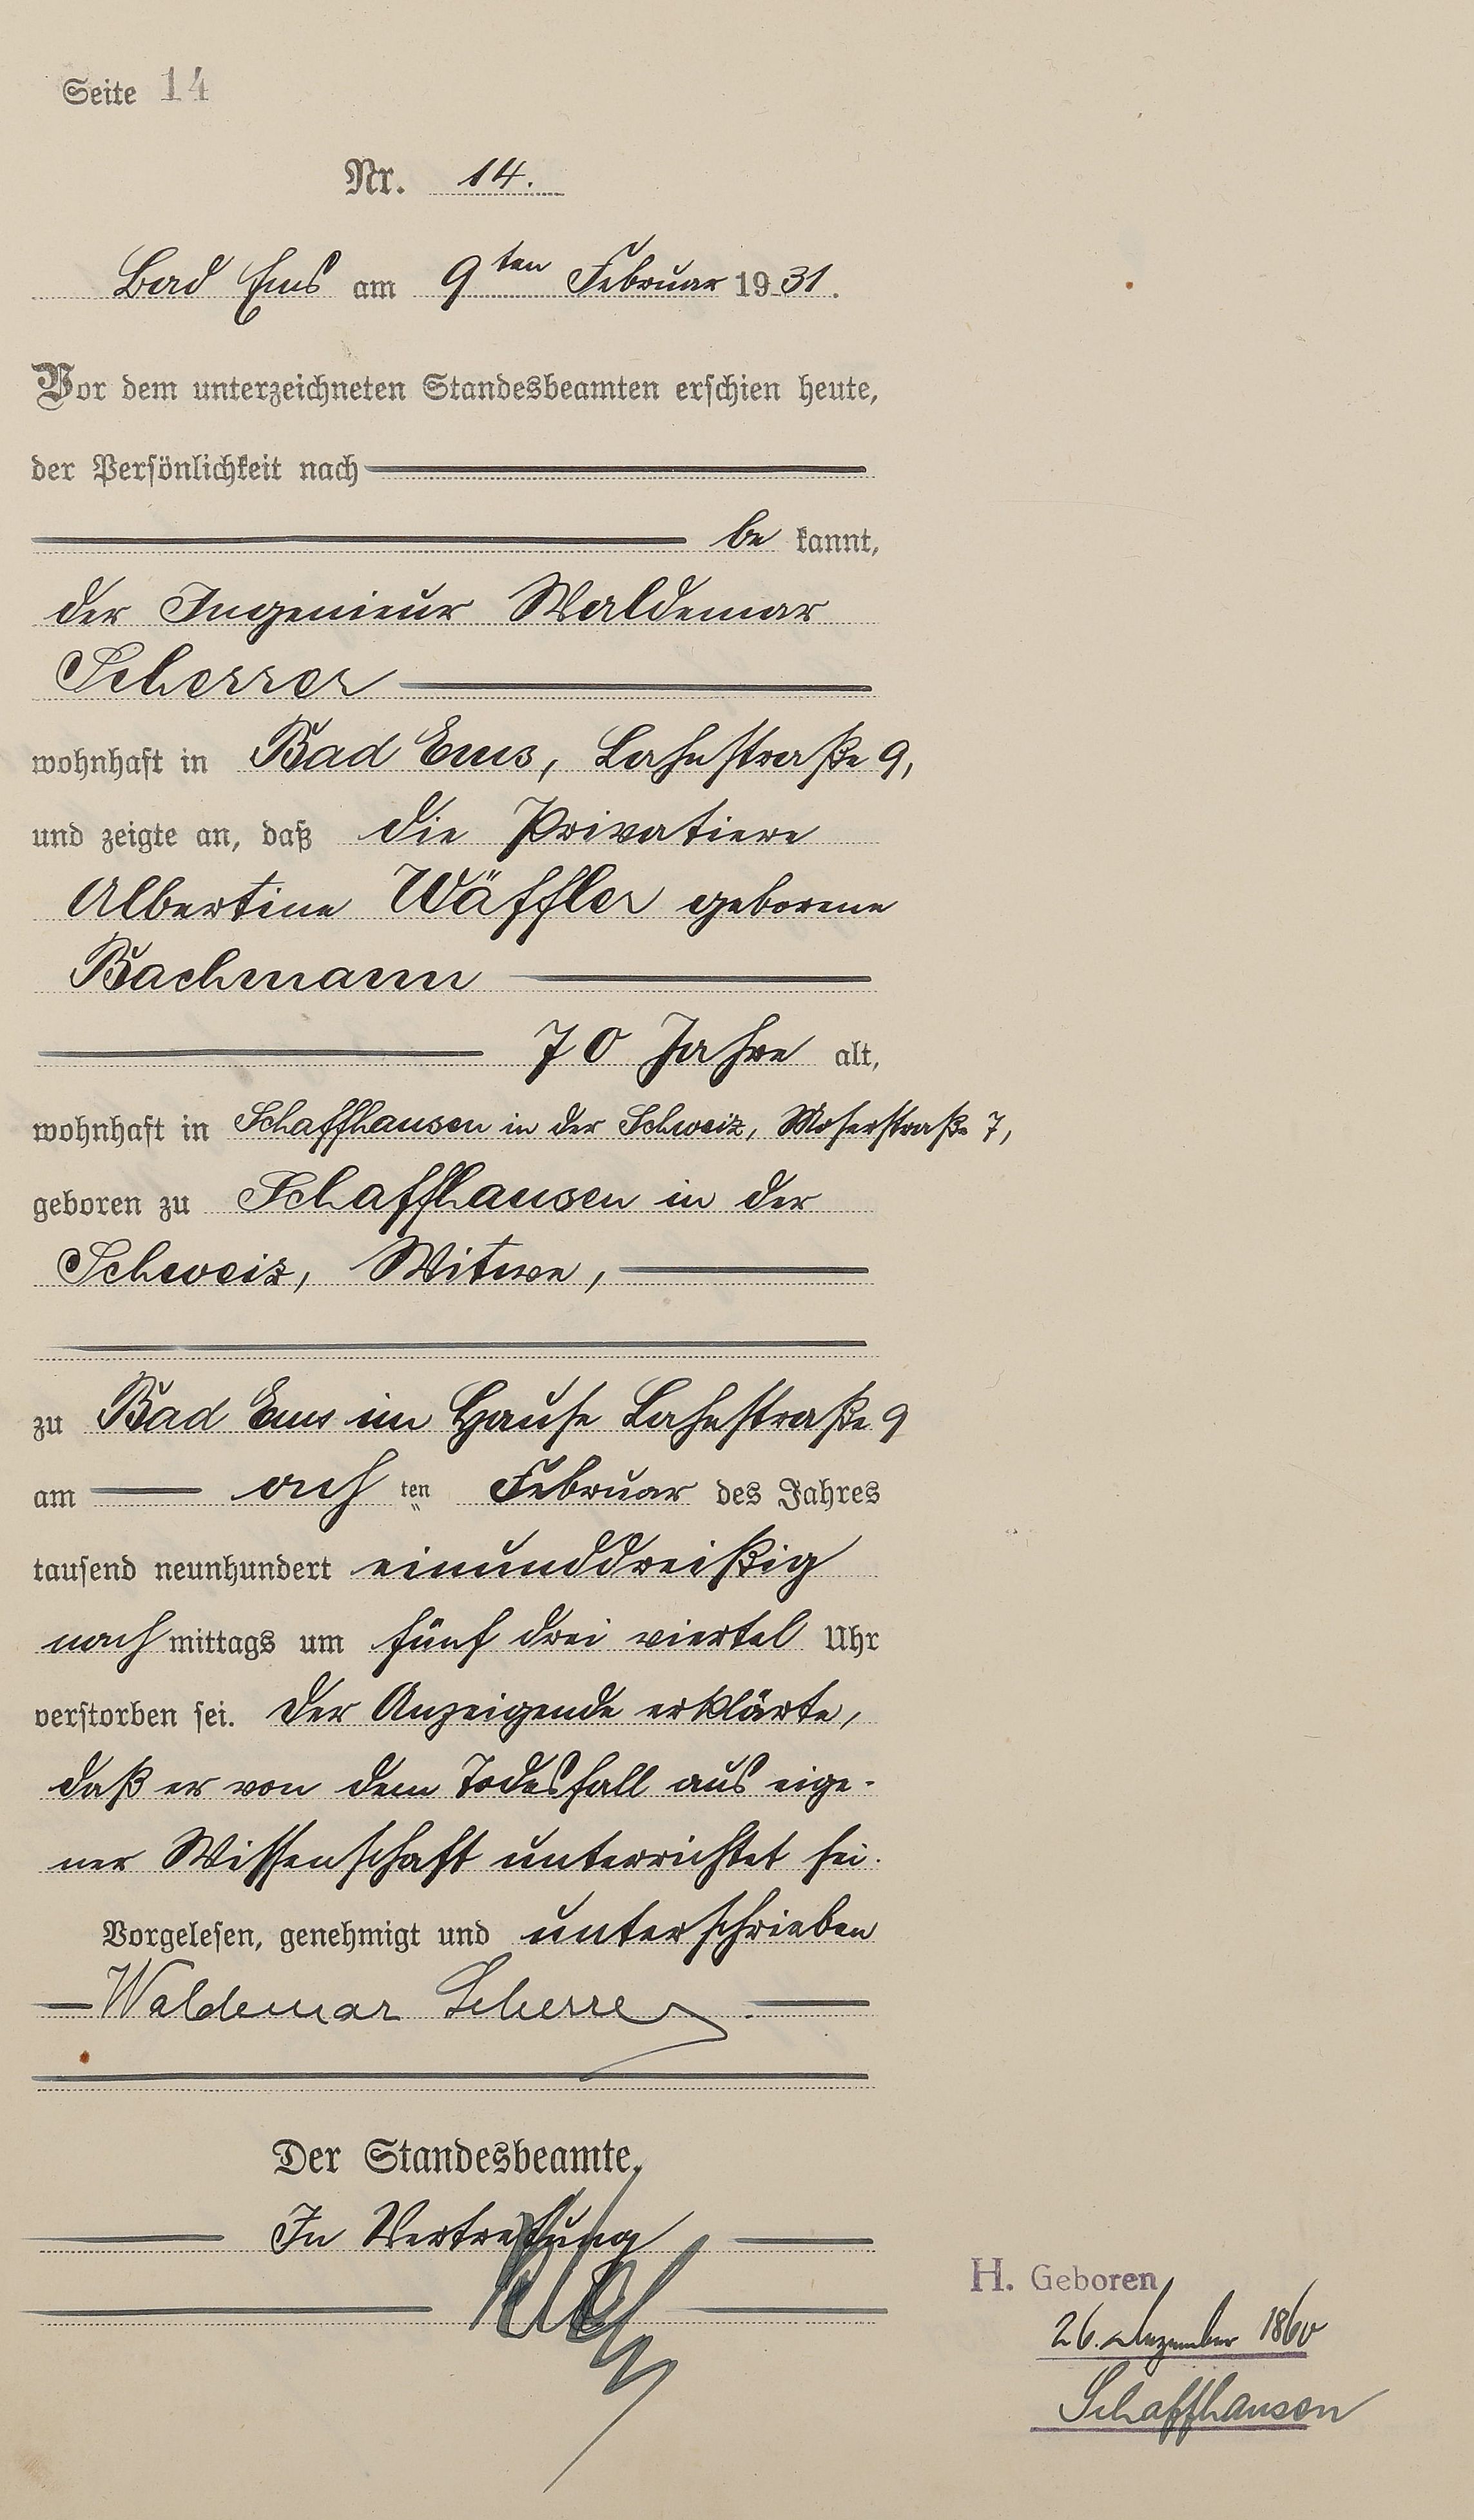 Seite 14
Nr. 14.
Bad Ems am 9ten Februar 1931.
Vor dem unterzeichneten Standesbeamten erschien heute,
der Persönlichkeit nach
be kannt,
der Ingenieur Waldemar
Scherrer
wohnhaft in Bad Ems, Lahnstraße 9,
und zeigte an, daß die Privatiere
Albertine Wäffler geborene
Bachmann
70 Jahre alt,
wohnhaft in Schaffhausen in der Schweiz, Moserstraße 7,
geboren zu Schaffhausen in der
Schweiz, Witwe,
zu Bad Ems im Hause Lahnstraße 9
am ach ten Februar des Jahres
tausend neunhundert einunddreißig
nach mittags um fünf drei viertel Uhr
verstorben sei. Der Anzeigende erklärte,
daß er von dem Todesfall aus eige-
ner Wissenschaft unterrichtet sei.
Vorgelesen, genehmigt und unterschrieben
Waldemar Scherrer.
Der Standesbeamte.
In Vertretung
H. Geboren
26. Dezember 1860
Schaffhausen